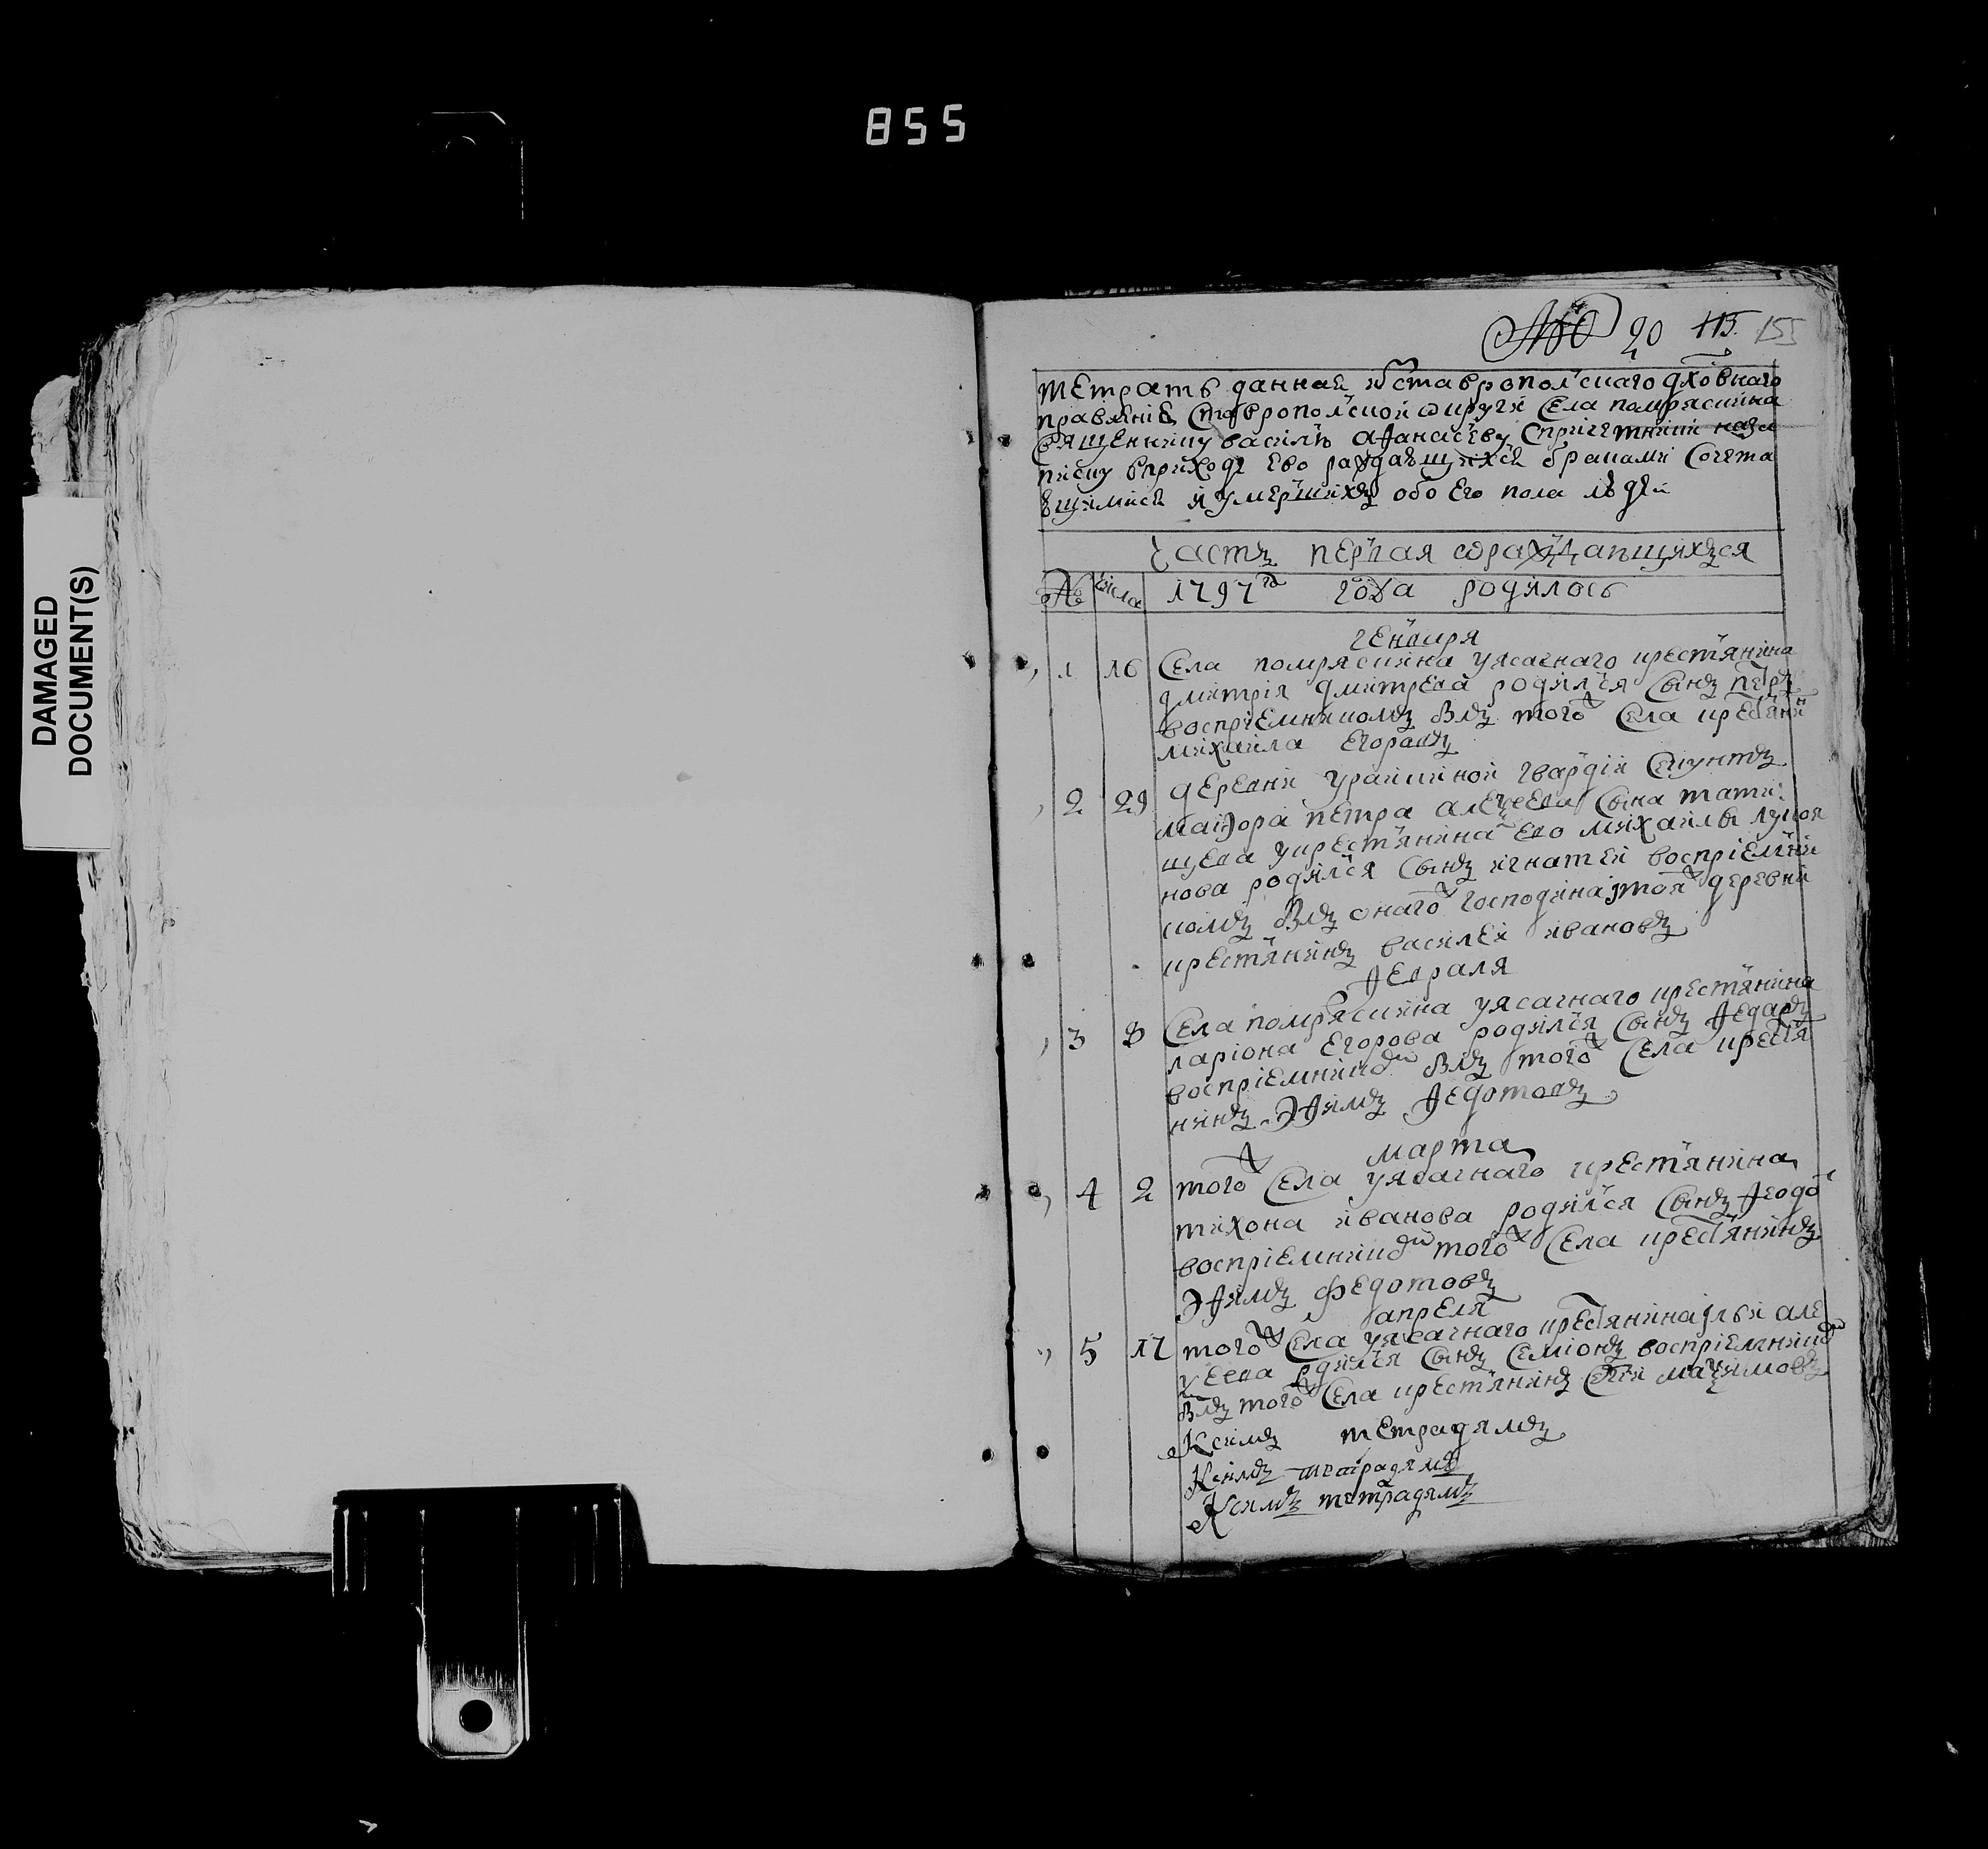 855
DAMAGED
DOCUMENT(S)
20 115 155
тетрать даннаѧ изставрополскаго дховнаго
правленіѧ ставрополской округи села помряскина
священнику василью афанасьеву спричетники
писку вприходе ево раждаѣшихсѧ браками сочета
вшимисѧ иумершихъ обоего пола людеи
часть первая ораждающихъся
№ числа 1797го года родилось
генваря
1 16 села помряскина уясачнаго крестьянина
дмитрія дмитрева родился сынъ петръ
воспріемникомъ былъ того села крестянинъ
михаила егоравъ
2 29 деревни урайкиной гвардіи секунтъ
маіора петра алексеева сына тати
щева укрестьянина ево михайлы лукоя
нова родился сынъ игнатеи воспріемни
комъ былъ онаго господина, тоя деревни
крестьянинъ василеи ивановъ
февраля
3 8 села помряскина уясачнаго крестьянина
ларіона егорова родился сынъ федаръ
воспріемникомъ былъ того села крестья
нинъ эфимъ федотовъ
марта
4 2 того села уясачнаго крестьянина
тихона иванова родился сынъ феодо
воспріемникомъ того села крестьянинъ
эфимъ федотовъ
апреля
5 17 того села уясачнаго крестьянина ильи але
ѯеева родился сынъ семіонъ воспріемникомъ
былъ того села крестьянинъ маѯимовъ
Ксимъ тетрадямъ
Ксимъ тетрадямъ
Ксимъ тетрадямъ